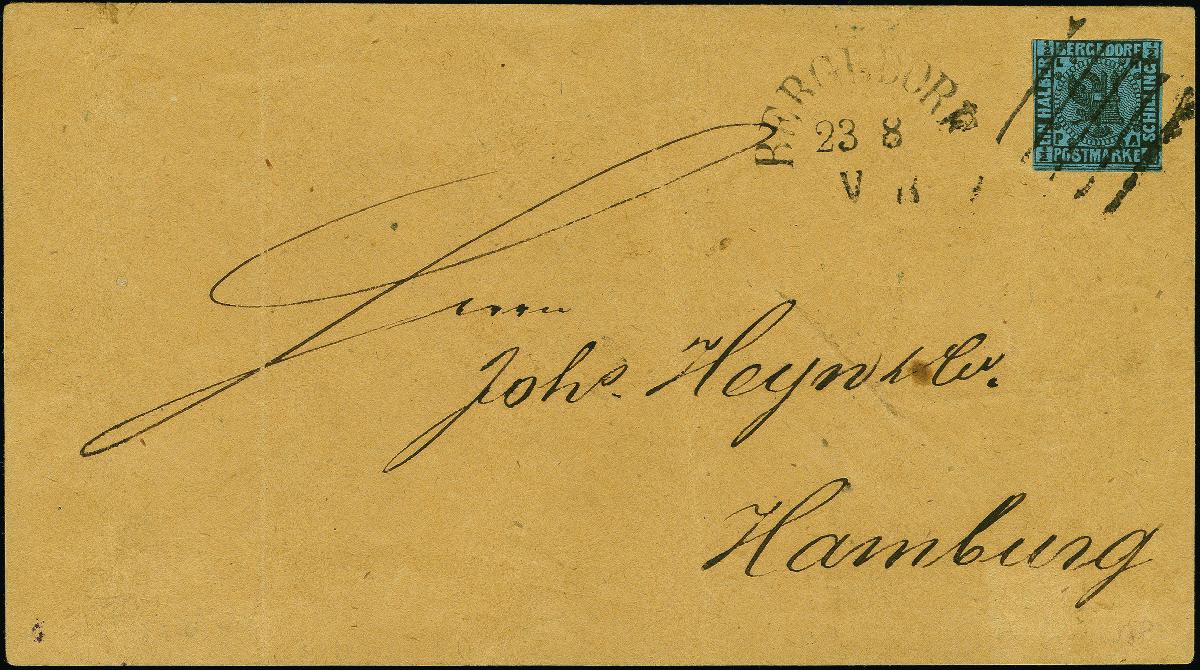 BERGEDORF
23 8
V
BERGEDORF
EIN HALBER
SCHILLING
POSTMARKE
L P A
Herrn
Johs. Heyn & Co.
Hamburg